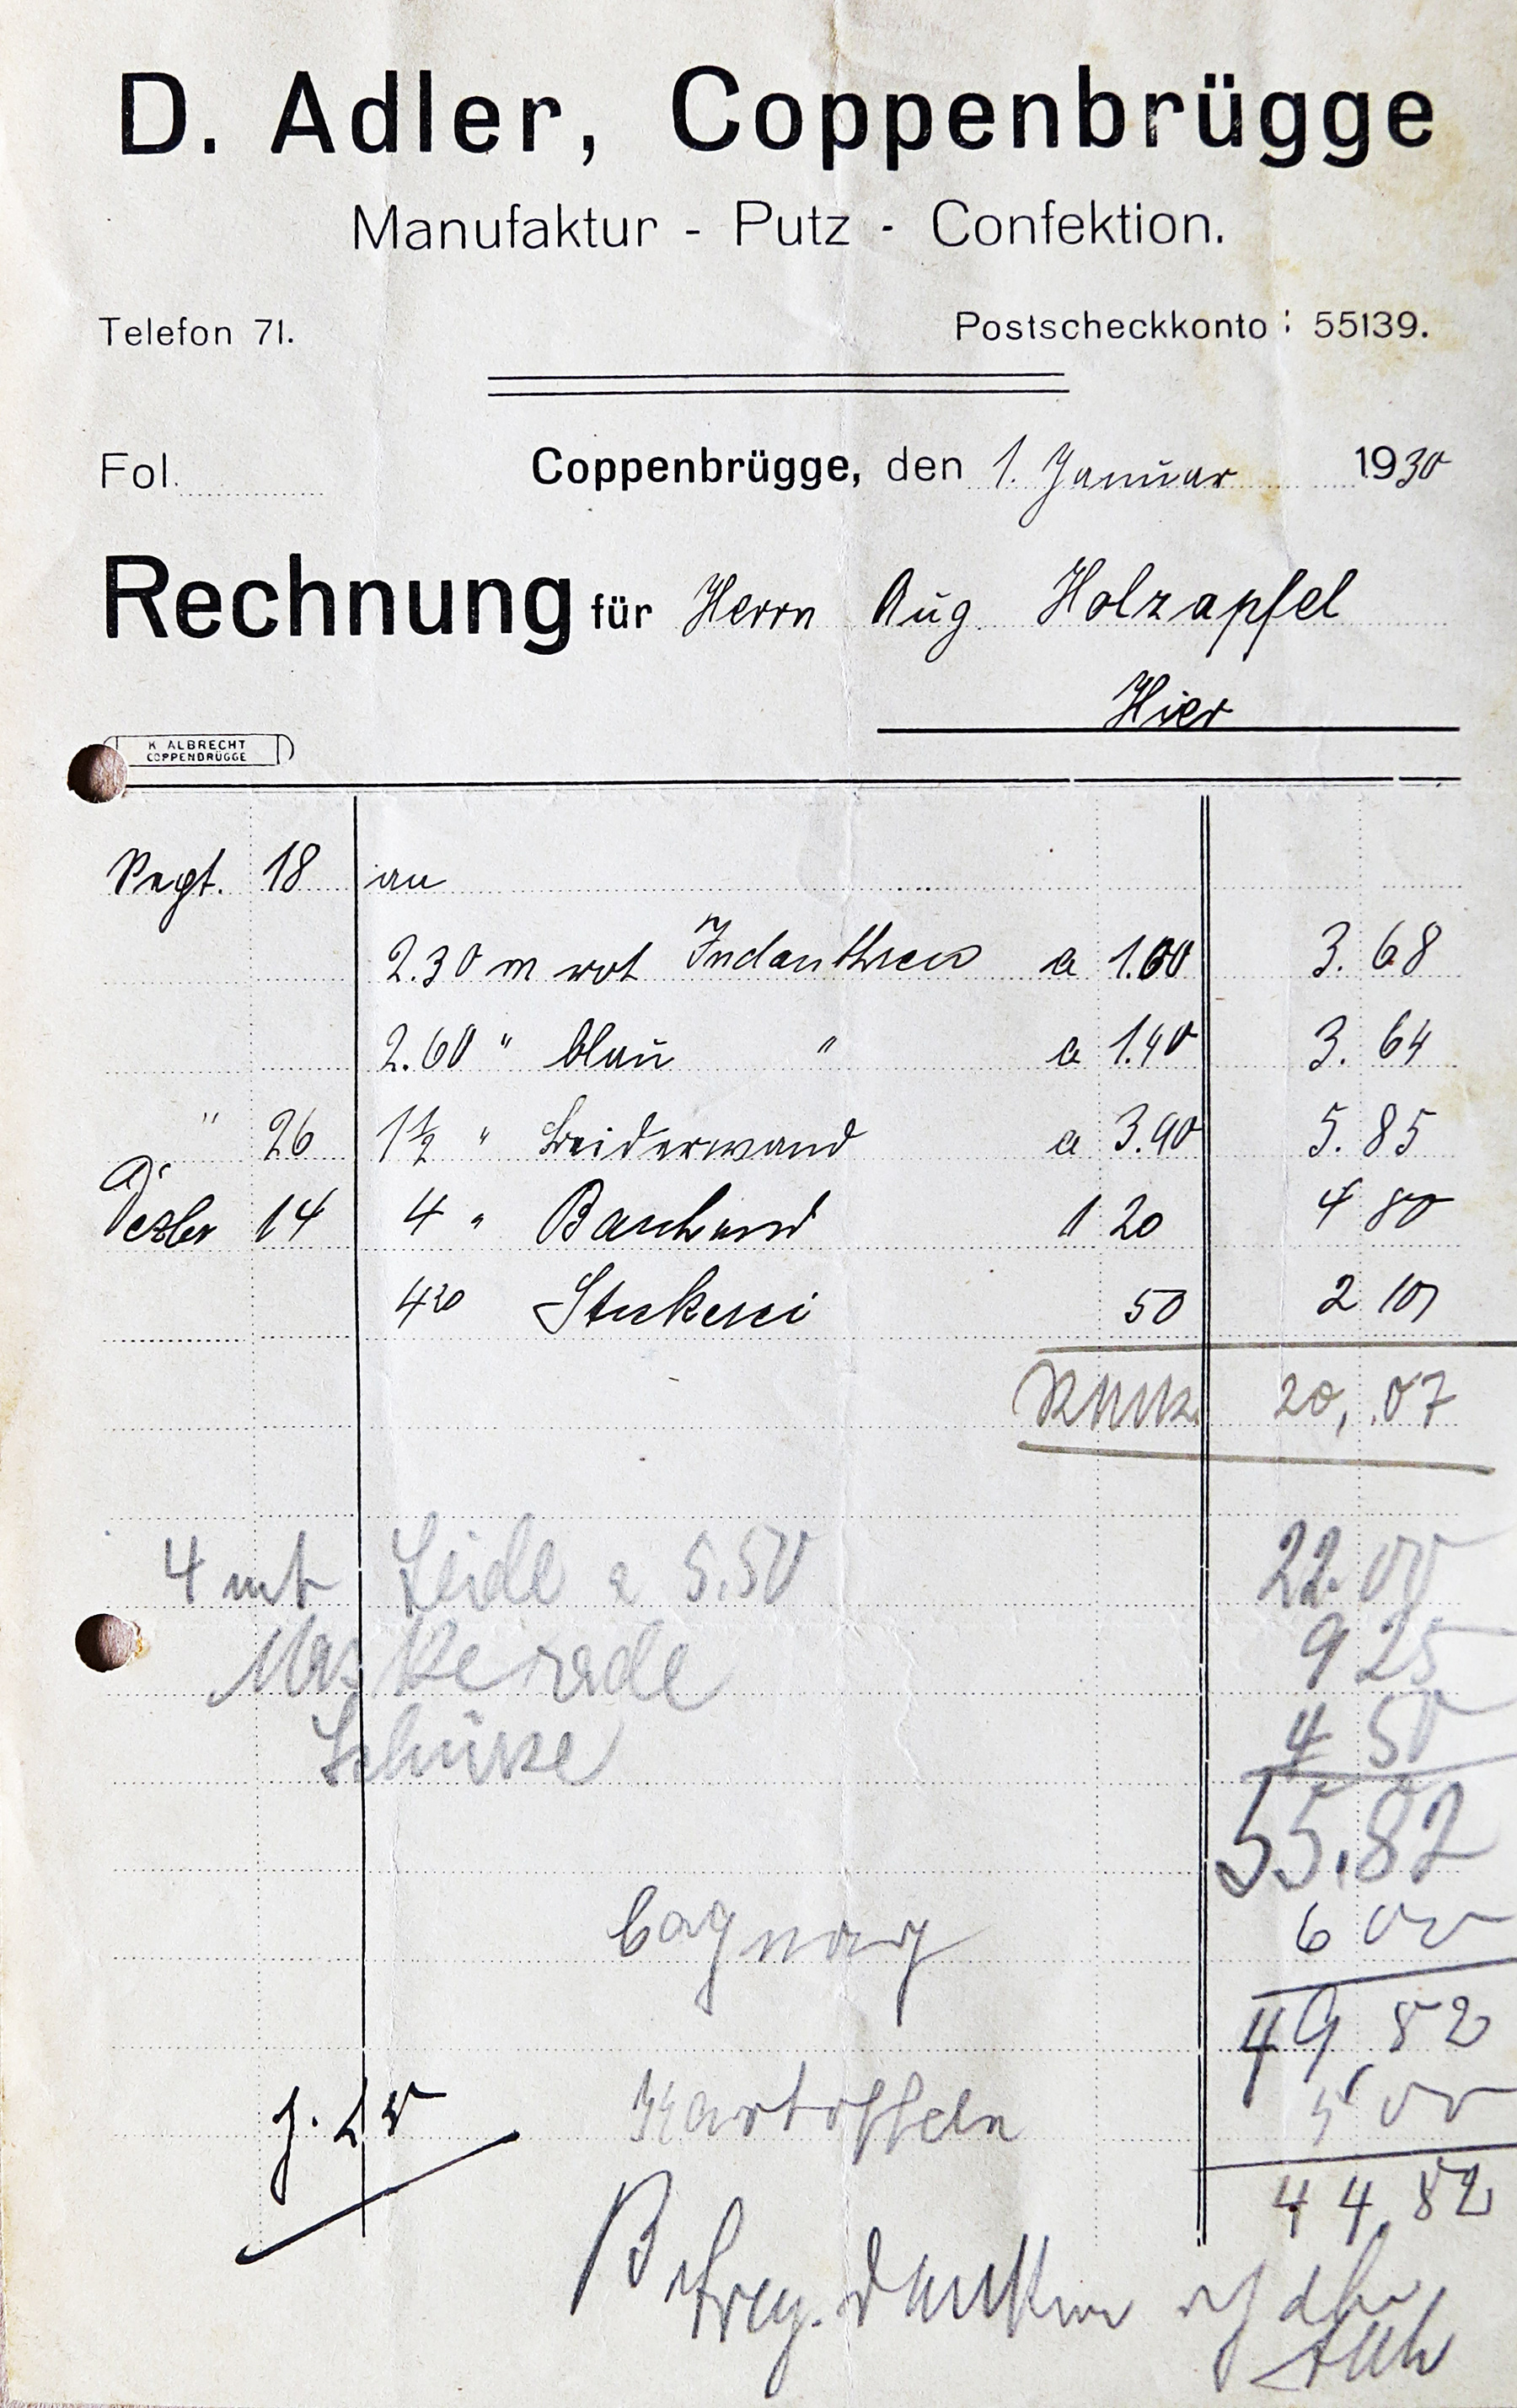 D. Adler, Coppenbrügge
Manufaktur - Putz - Confektion.
Telefon 71. Postscheckkonto: 55139.
Fol. Coppenbrügge, den 1. Januar 1930
Rechnung für Herrn Aug. Holzapfel
Hier
K ALBRECHT
COPPENBRÜGGE
Sept. 18 an
2.30 m rot Indanthren a 1.60 3.68
2.60 " blau " a 1.40 3.64
" 26 1½ " Beiderwand a 3.90 5.85
Dezbr 14 4 " Barchend 1 20 4 80
4 20 Stickerei 50 2 10
RMk. 20,07
4 mt Seide a 5.50 22.00
Maskerade 9 25
Schürze 4 50
55.82
6 00
49 82
Kartoffeln 5 00
44,82
Betrag. dankend